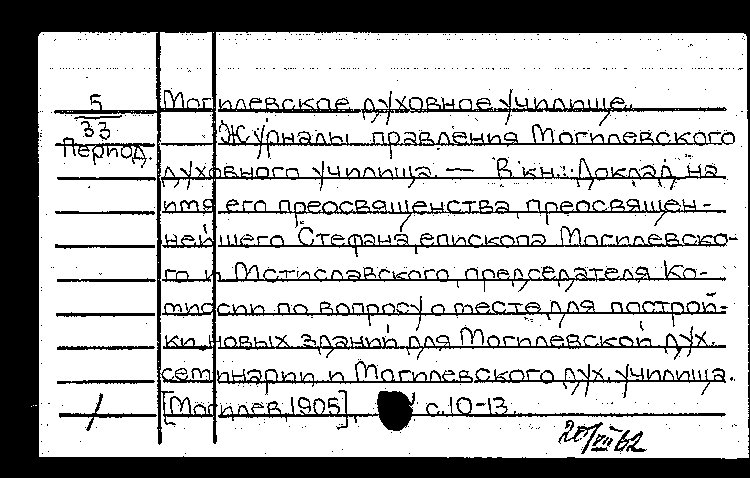 5
33
Период.
Могилевское духовное училище.
Журналы правления Могилевского
духовного училища. — В кн.: Доклад на
имя его преосвященства, преосвящен-
нейшего Стефана, епископа Могилевско-
го и Мстиславского, председателя Ко-
миссии по вопросу о месте для построй-
ки новых зданий для Могилевской дух.
семинарии и Могилевского дух. училища.
[Могилев, 1905], с. 10-13.